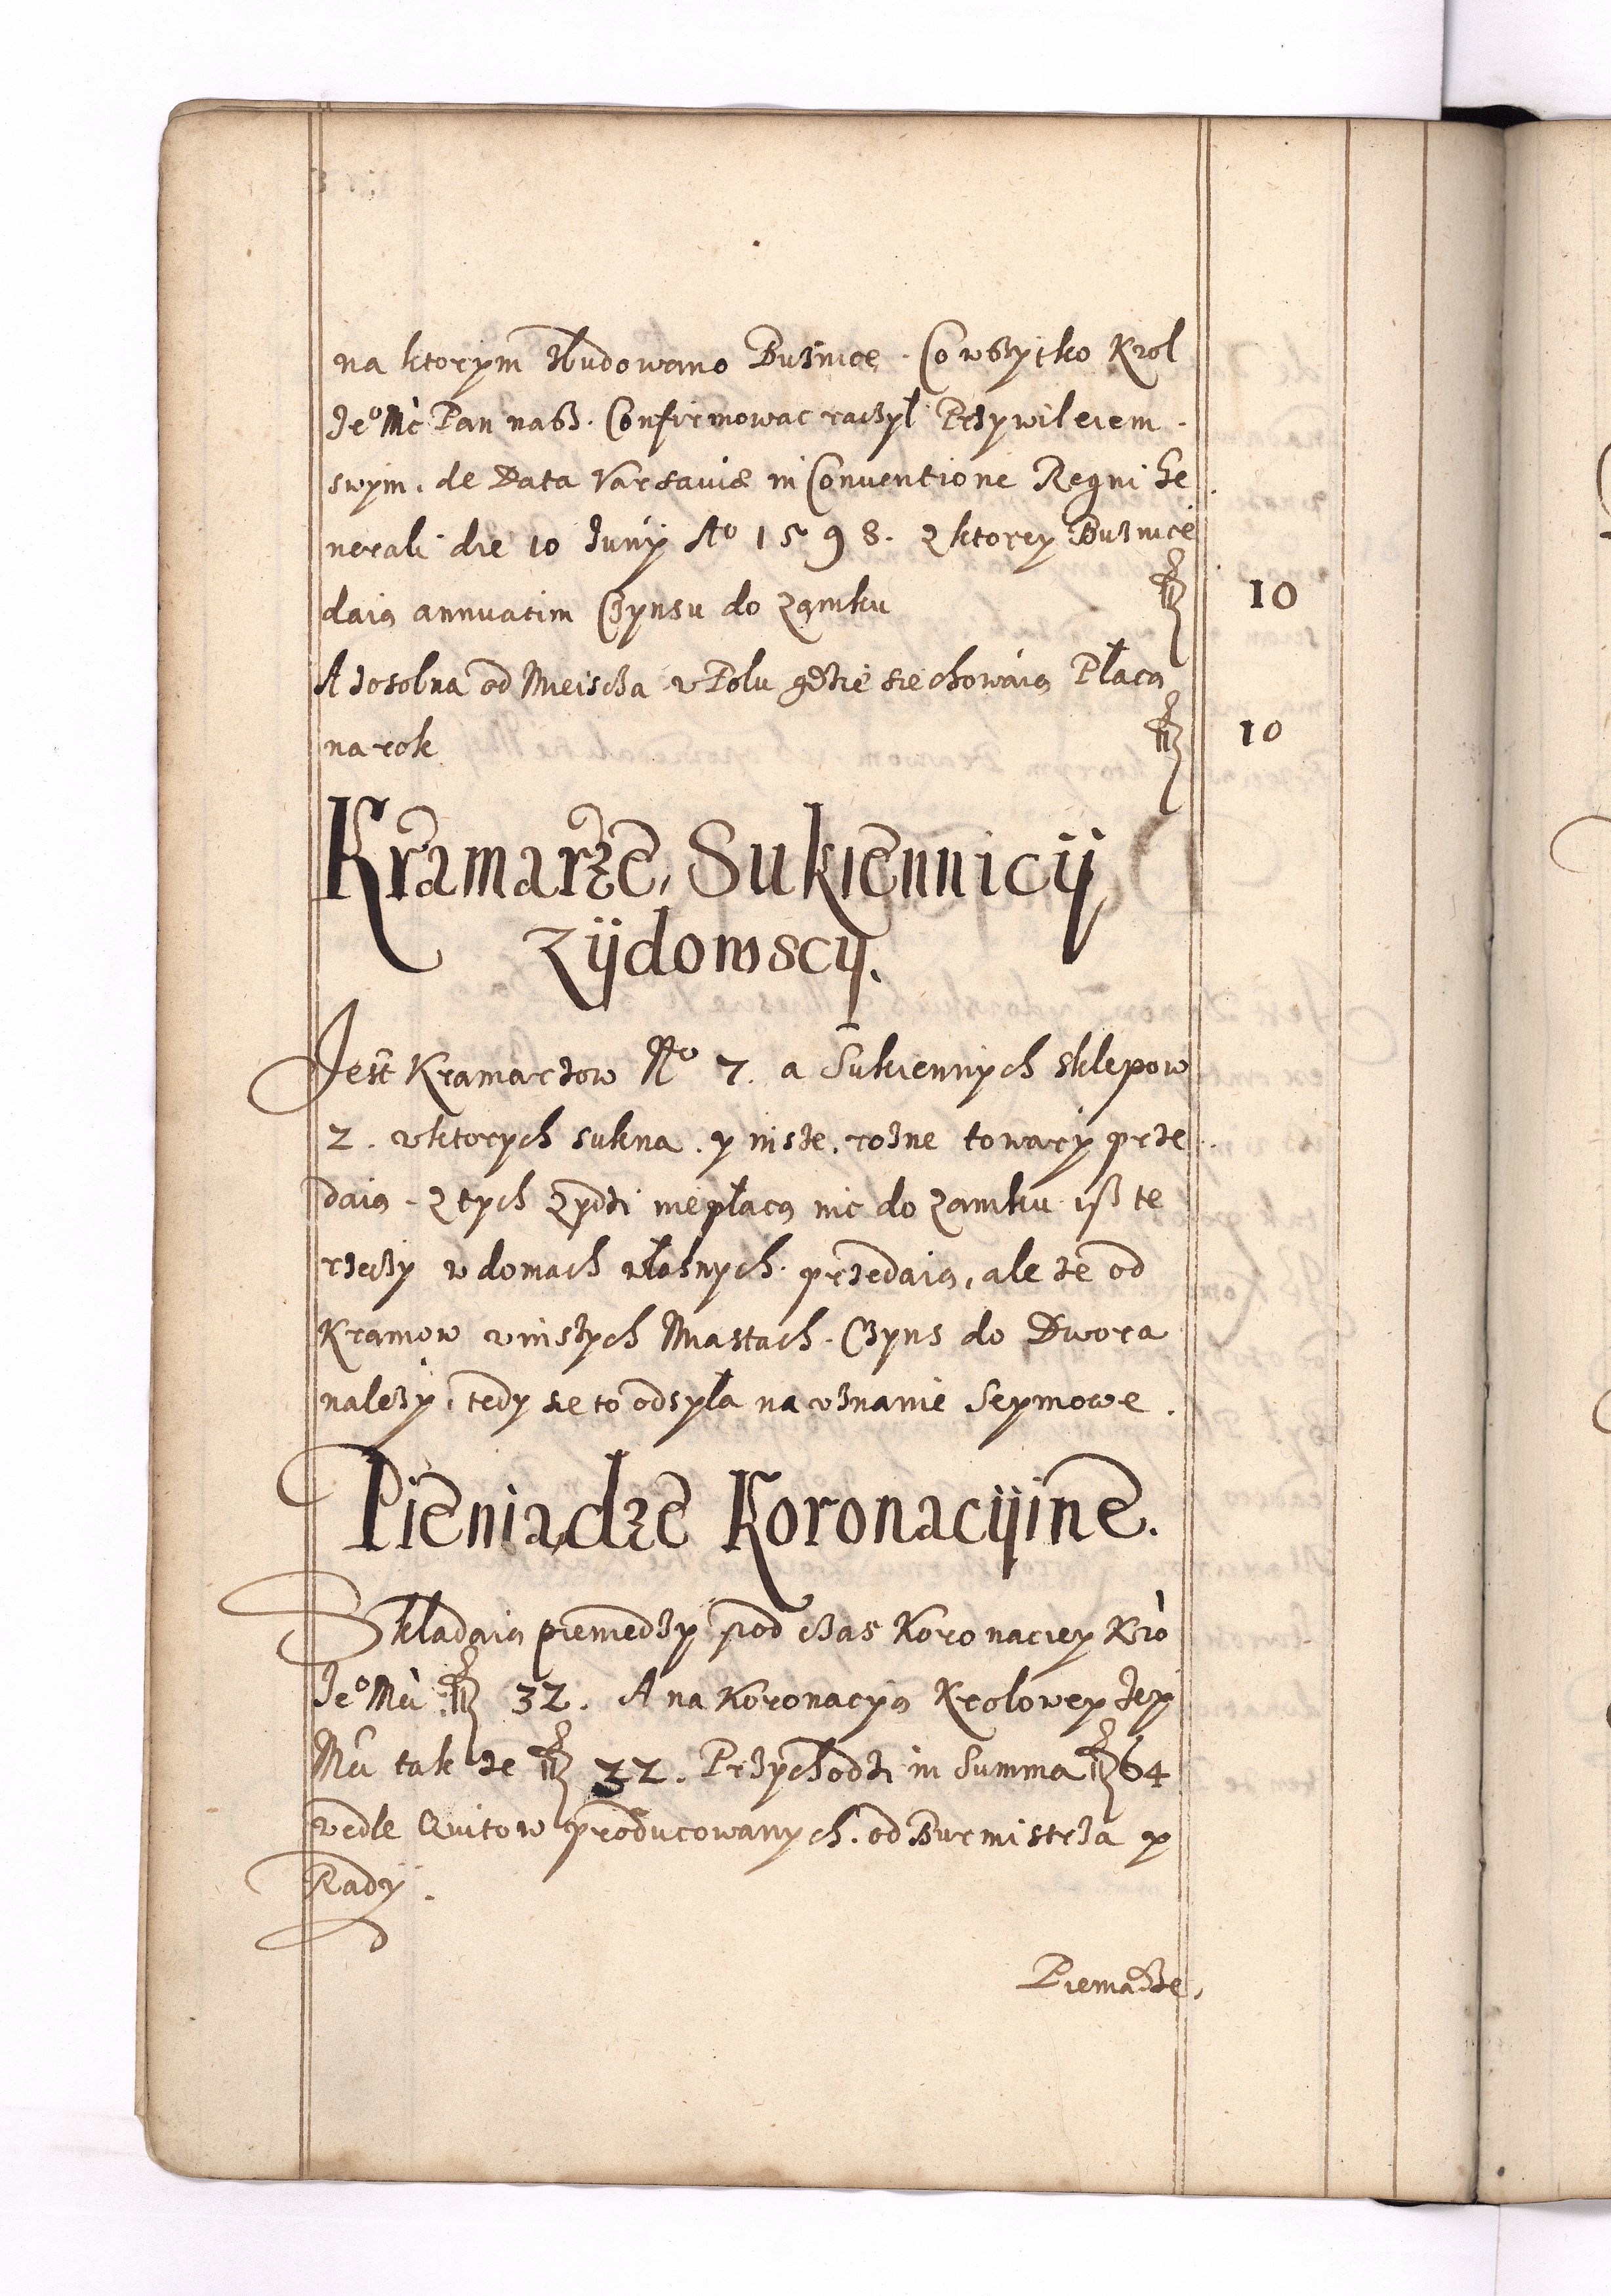 na ktorym zbudowano Bużnicę. Co wszytko Krol
Je° Mć Pan nasz. Confirmowac raczył Przywileiem
swym. de Data Varsauiæ in Conventione Regni Ge
nerali die 10 Junÿ A° 1598. z ktorey Bużnice
daią annuatim Czynsu do zamku fl 10
A zosobna od Mieiscza w Polu gdzie sie chowaią Płacą
na rok fl 10
Kramarze, Sukiennicÿ
Zÿdowscÿ.
Jest Kramarzow N° 7. a Sukiennych sklepow
2. w ktorych sukna. y insze. rozne towary prze
daią. z tych Zydzi niepłacą nic do zamku isz te
rzeczy w domach własnych. przedaią, ale ze od
Kramow w inszych Miastach. Czyns do Dwora
nalezy, tedy sie to odsyła na uznanie Seymowe.
Pieniądze Koronacÿine.
Składaią pieniedzy pod czas Koronaciey Kró
Je° Mci fl 32. A na Koronacyą Krolowey Jey
Mci tak ze fl 32. Przychodzi in Summa fl 64
wedle Quitow producowanych. od Burmistrza y
Rady.
Pieniadze,